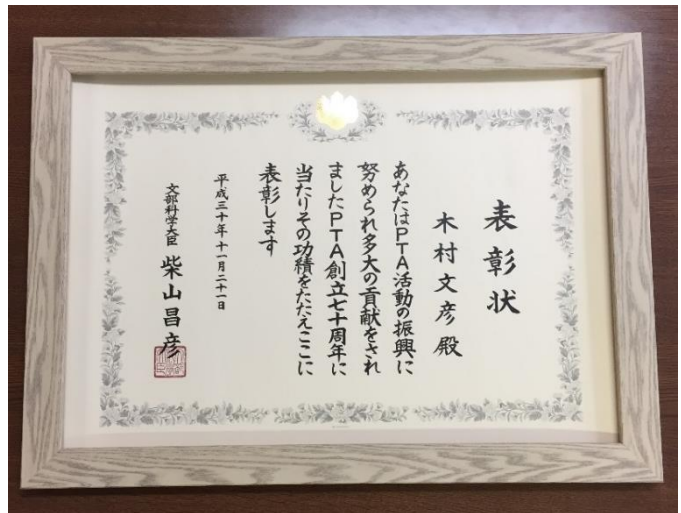 表彰状
木村文彦殿
あなたはPTA活動の振興に
努められ多大の貢献をされ
ましたPTA創立七十周年に
当たりその功績をたたえここに
表彰します
平成三十年十一月二十一日
文部科学大臣 柴山昌彦